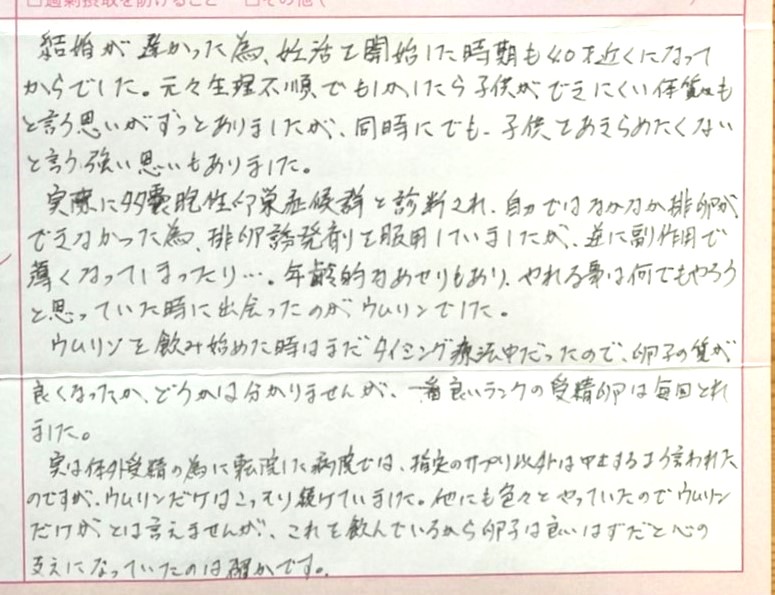 □過剰摂取を防げること □その他(
結婚が遅かった為、妊活を開始した時期も40才近くになって
からでした。元々生理不順でもしかしたら子供ができにくい体質かも
と言う思いがずっとありましたが、同時にでも、子供をあきらめたくない
と言う強い思いもありました。
実際に多嚢胞性卵巣症候群と診断され、自力ではなかなか排卵が
できなかった為、排卵誘発剤を服用していましたが、逆に副作用で
薄くなってしまったり…。年齢的なあせりもあり、やれる事は何でもやろう
と思っていた時に出会ったのがウムリンでした。
ウムリンを飲み始めた時はまだタイミング療法中だったので、卵子の質が
良くなったか、どうかは分かりませんが、一番良いランクの受精卵は毎回とれ
ました。
実は体外受精の為に転院した病院では、指定のサプリ以外は中止するよう言われた
のですが、ウムリンだけはこっそり続けていました。他にも色々とやっていたのでウムリン
だけが、とは言えませんが、これを飲んでいるから卵子は良いはずだと心の
支えになっていたのは確かです。